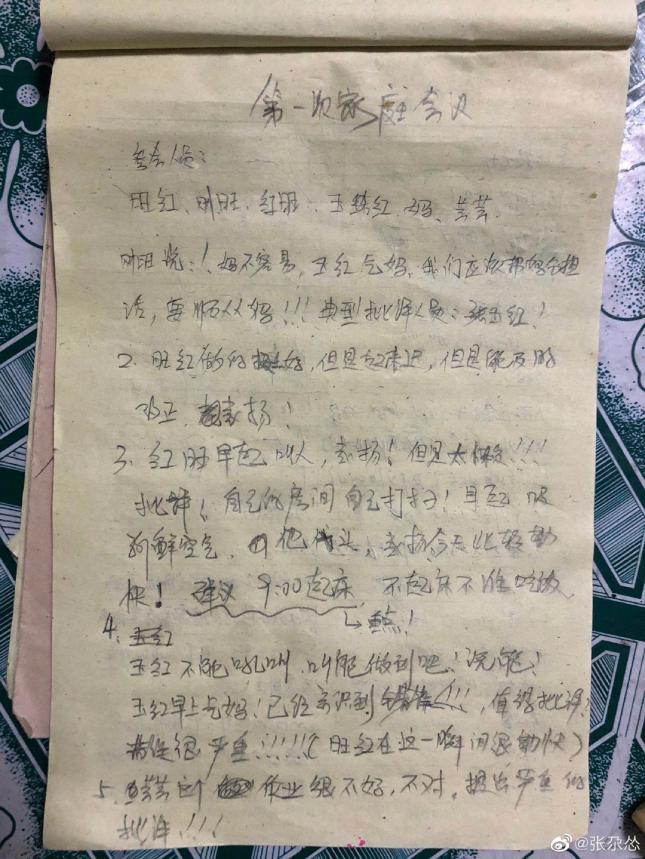 第一次家庭会议
参会人员：
旺红、刚旺、红旺、玉红、妈、芸芸.
刚旺说：1、妈不容易，玉红气妈，我们应该帮妈分担
活，要顺从妈！！！典型批评人员：张玉红！
2、旺红做的好，但是起来迟，但是能及时
改正，表扬！
3、红旺早起叫人，表扬！但是太懒！！！
批评！自己的房间自己打扫！早起 吸
新鲜空气，表扬今天比较勤
快！建议 9:00起床，不起床不准吃饭
↳重点！
4、玉红
玉红不能吼叫，叫能做到吧！说能！
玉红早上气妈！已经意识到错误！！！，值得批评！
很严重！！！！！（旺红在这一瞬间很勤快）
5、芸芸的作业很不好，不对，提出严重的
批评！！！
@张尕怂